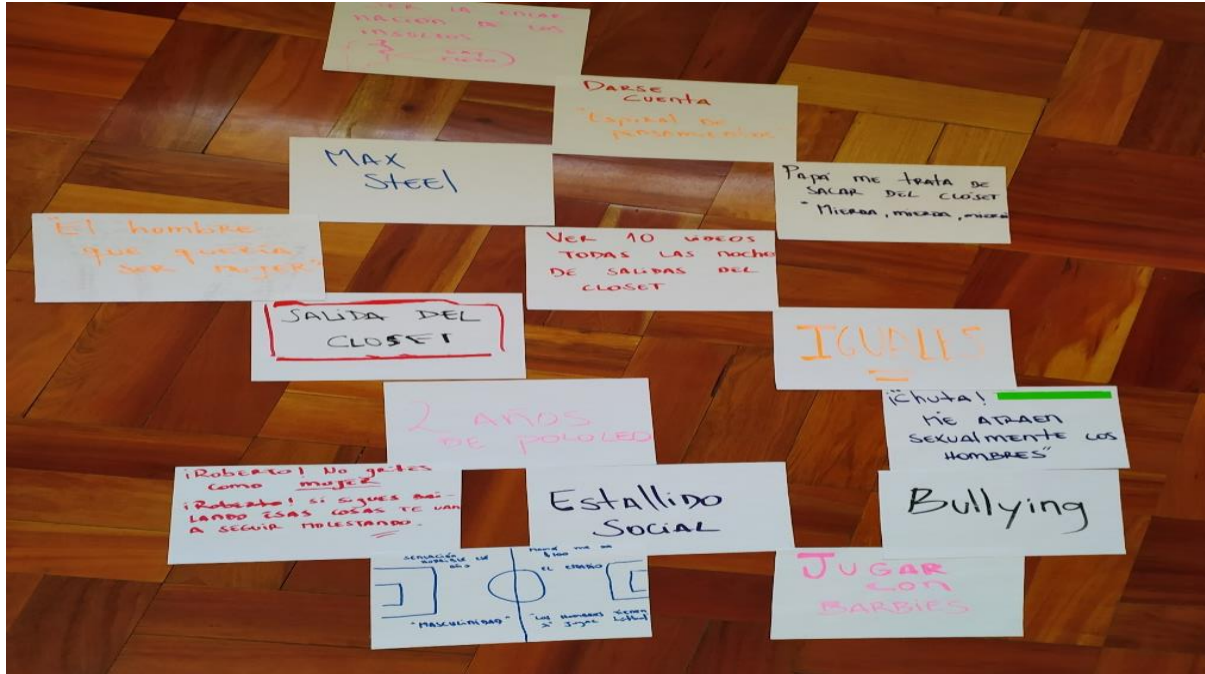 ...SER LA ENCAR
NACIÓN DE LOS
INSULTOS
DARSE
CUENTA
"Espiral de
pensamientos
MAX
Steel
Papá me trata de
SACAR DEL CLÓSET
"Mierda, mierda, mierda
"El hombre
que quería
ser mujer"
Ver 10 videos
TODAS LAS noches
DE SALIDAS DEL
CLOSET
SALIDA DEL
CLOSET
IGUALES
¡Chuta!
ME ATRAEN
SEXUALMENTE LOS
HOMBRES"
2 AÑOS
DE POLOLEO
¡Roberto! No grites
como mujer
¡Roberto! si sigues bai-
LANDO ESAS COSAS TE VAN
A SEGUIR MOLESTANDO.
Estallido
Social
Bullying
"MASCULINIDAD"
JUGAR
con
BARBIES